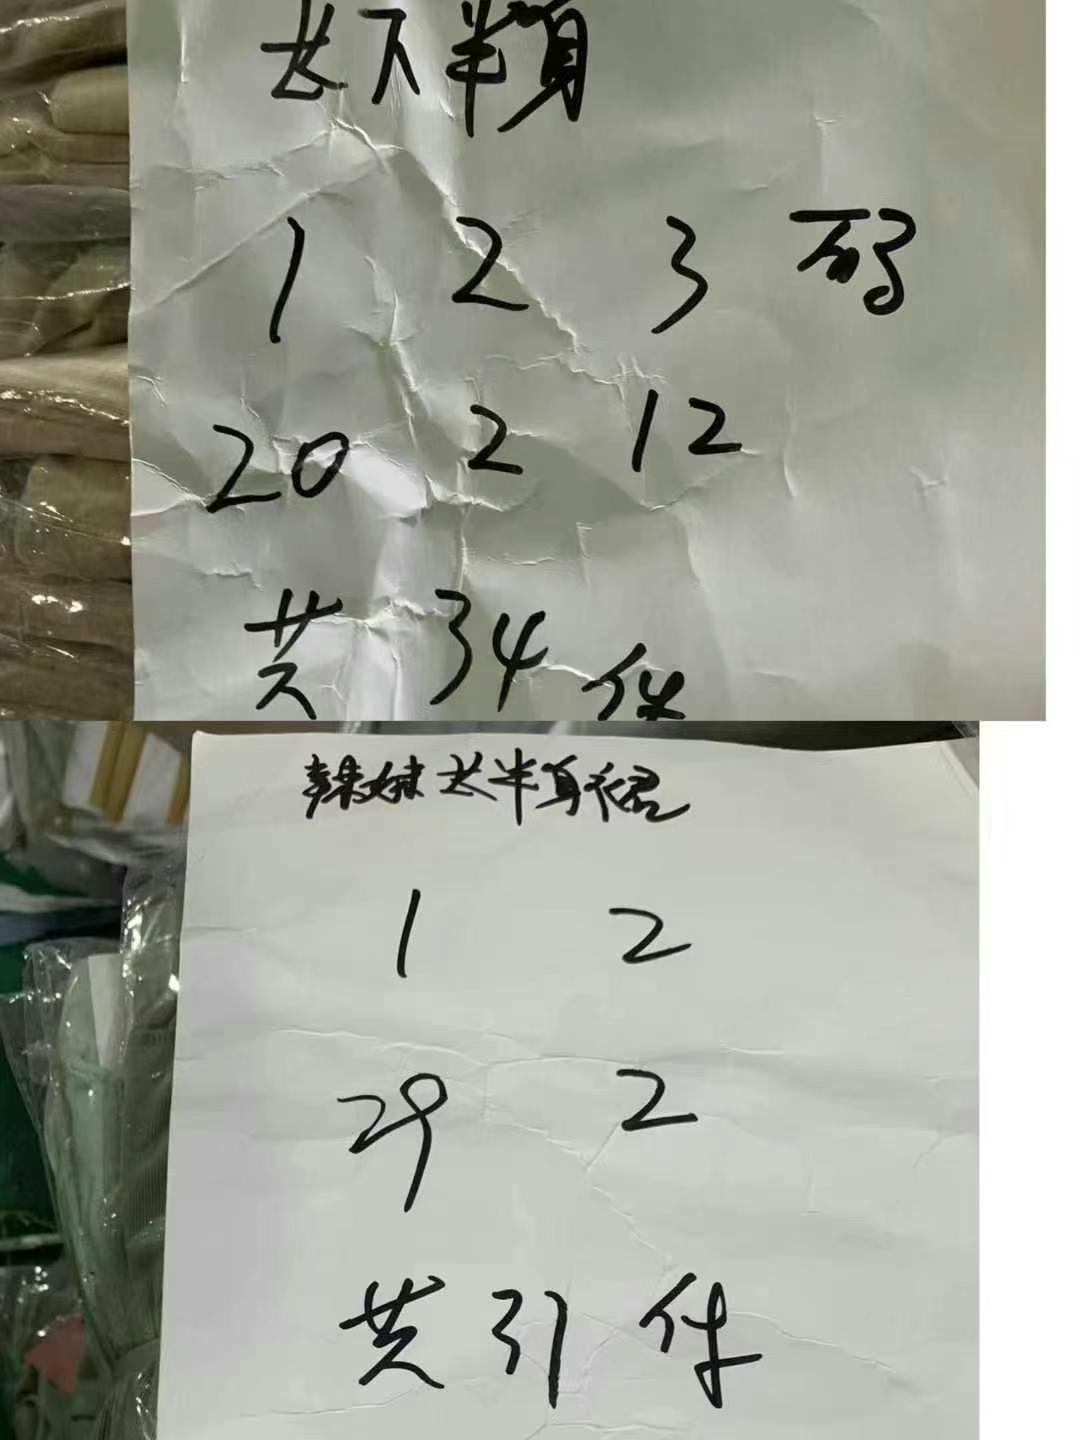 长下半身
1 2 3 码
20 2 12
共 34 件
辣妹长半身衣裙
1 2
29 2
共 31 件